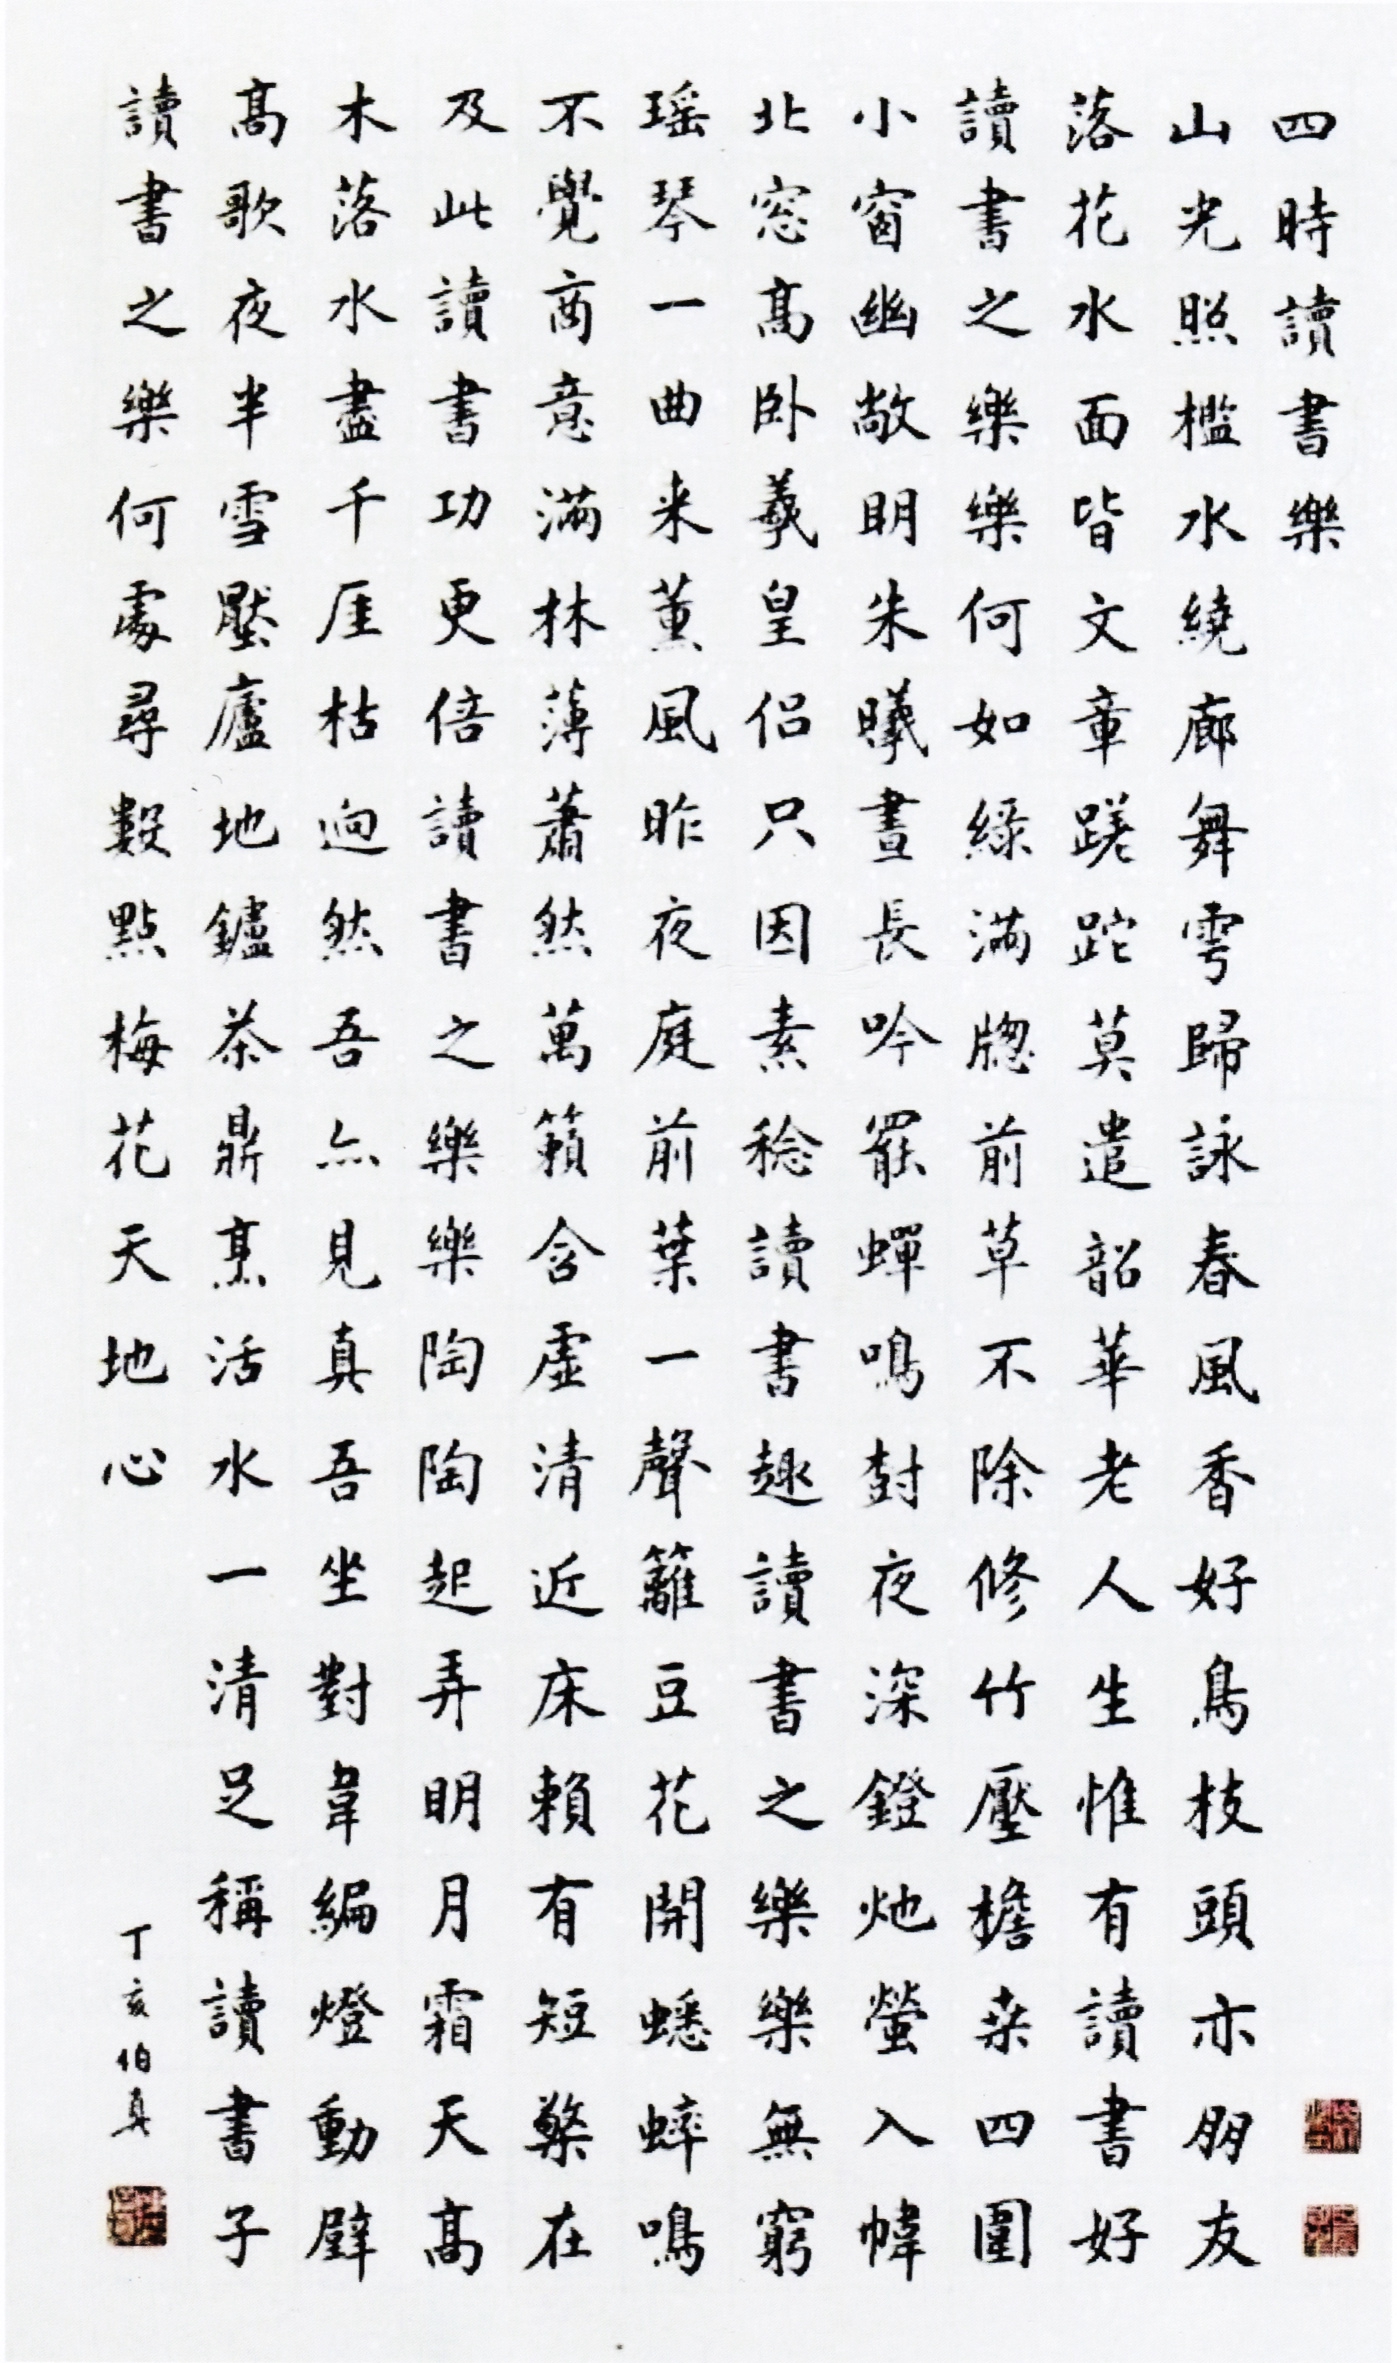 四時讀書樂
山光照檻水繞廊舞雩歸詠春風香好鳥枝頭亦朋友
落花水面皆文章蹉跎莫遣韶華老人生惟有讀書好
讀書之樂樂何如綠滿牕前草不除修竹壓檐桒四圍
小窗幽敞明朱曦晝長吟罷蟬鳴樹夜深鐙炧螢入幃
北窓高卧羲皇侶只因素稔讀書趣讀書之樂樂無窮
瑶琴一曲来薰風昨夜庭前葉一聲籬豆花開蟋蟀鳴
不覺商意滿林薄蕭然萬籟含虛清近床賴有短檠在
及此讀書功更倍讀書之樂樂陶陶起弄明月霜天高
木落水盡千厓枯迥然吾亦見真吾坐對韋編燈動壁
高歌夜半雪壓廬地鑪茶鼎烹活水一清足稱讀書子
讀書之樂何處尋數點梅花天地心
丁亥伯真